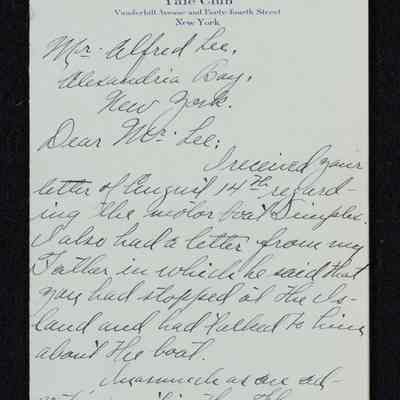 Yale Club
Vanderbilt Avenue and Forty-fourth Street
New York
Mr. Alfred Lee,
Alexandria Bay,
New York.
Dear Mr. Lee:
I received your
letter of August 14th regard-
ing the motor boat Dimples.
I also had a letter from my
Father in which he said that
you had stopped at the Is-
land and had talked to him
about the boat.
Inasmuch as an ad-